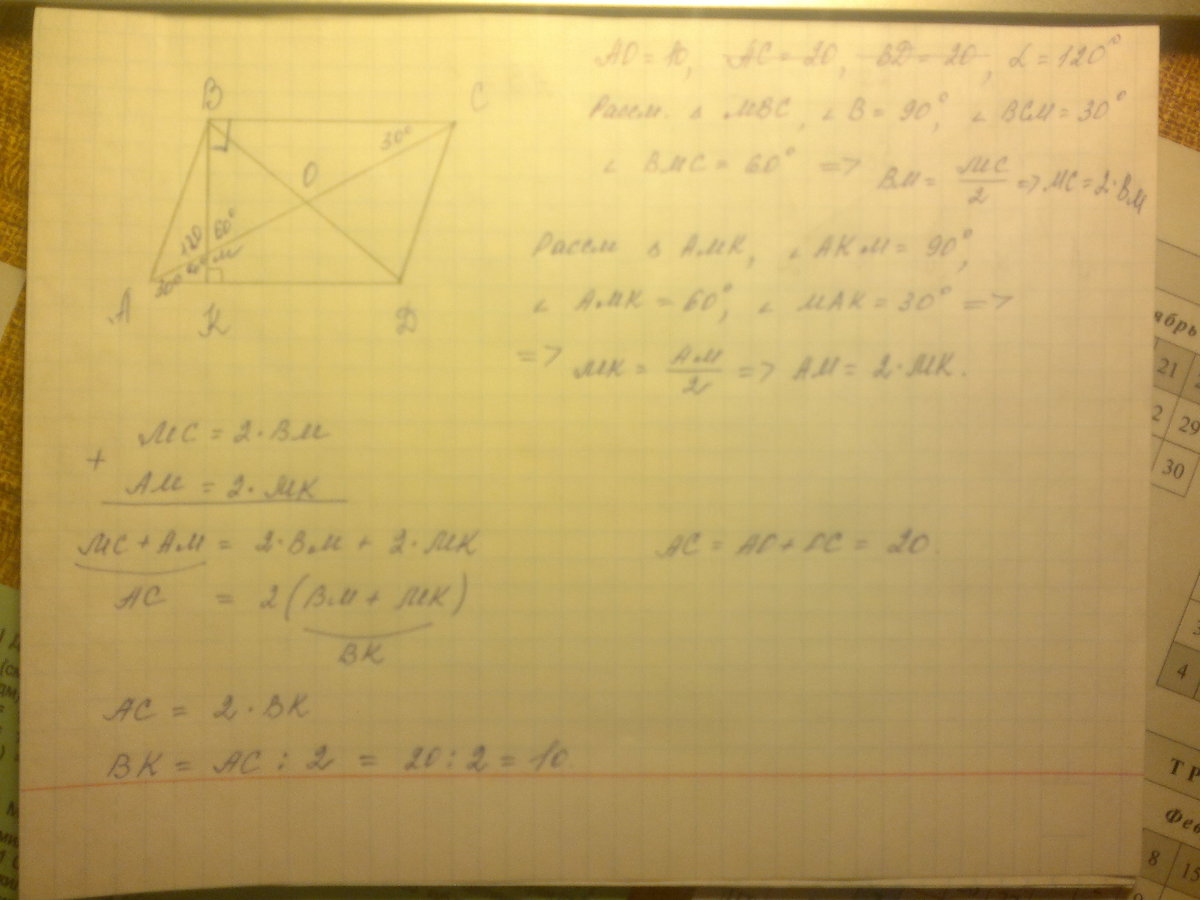 AO = 10, AC = 20, BD = 20, L = 120°
Рассм. Δ MBC, ∠B = 90°, ∠ BCM = 30°
∠ BMC = 60° => BM = MC/2 => MC = 2·BM
Рассм Δ AMK, ∠ AKM = 90°,
∠ AMK = 60°, ∠ MAK = 30° =>
=> MK = AM/2 => AM = 2·MK.
B
C
30°
O
120
60°
M
30°
A
K
D
MC = 2·BM
+
AM = 2·MK
MC + AM = 2·BM + 2·MK
AC = 2(BM + MK)
BK
AC = 2·BK
BK = AC : 2 = 20 : 2 = 10
AC = AO + OC = 20.
ябрь
21
2
29
30
4
ТР
Фев
8
15
9